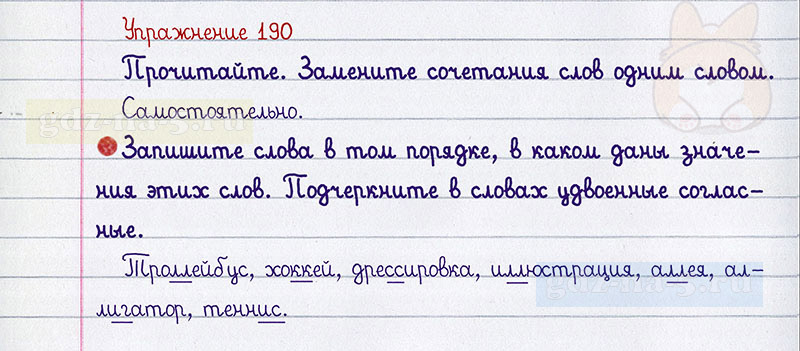 Упражнение 190
Прочитайте. Замените сочетания слов одним словом.
Самостоятельно.
Запишите слова в том порядке, в каком даны значе-
ния этих слов. Подчеркните в словах удвоенные соглас-
ные.
Троллейбус, хоккей, дрессировка, иллюстрация, аллея, ал-
лигатор, теннис.
gdz-na-5.ru
gdz-na-5.ru